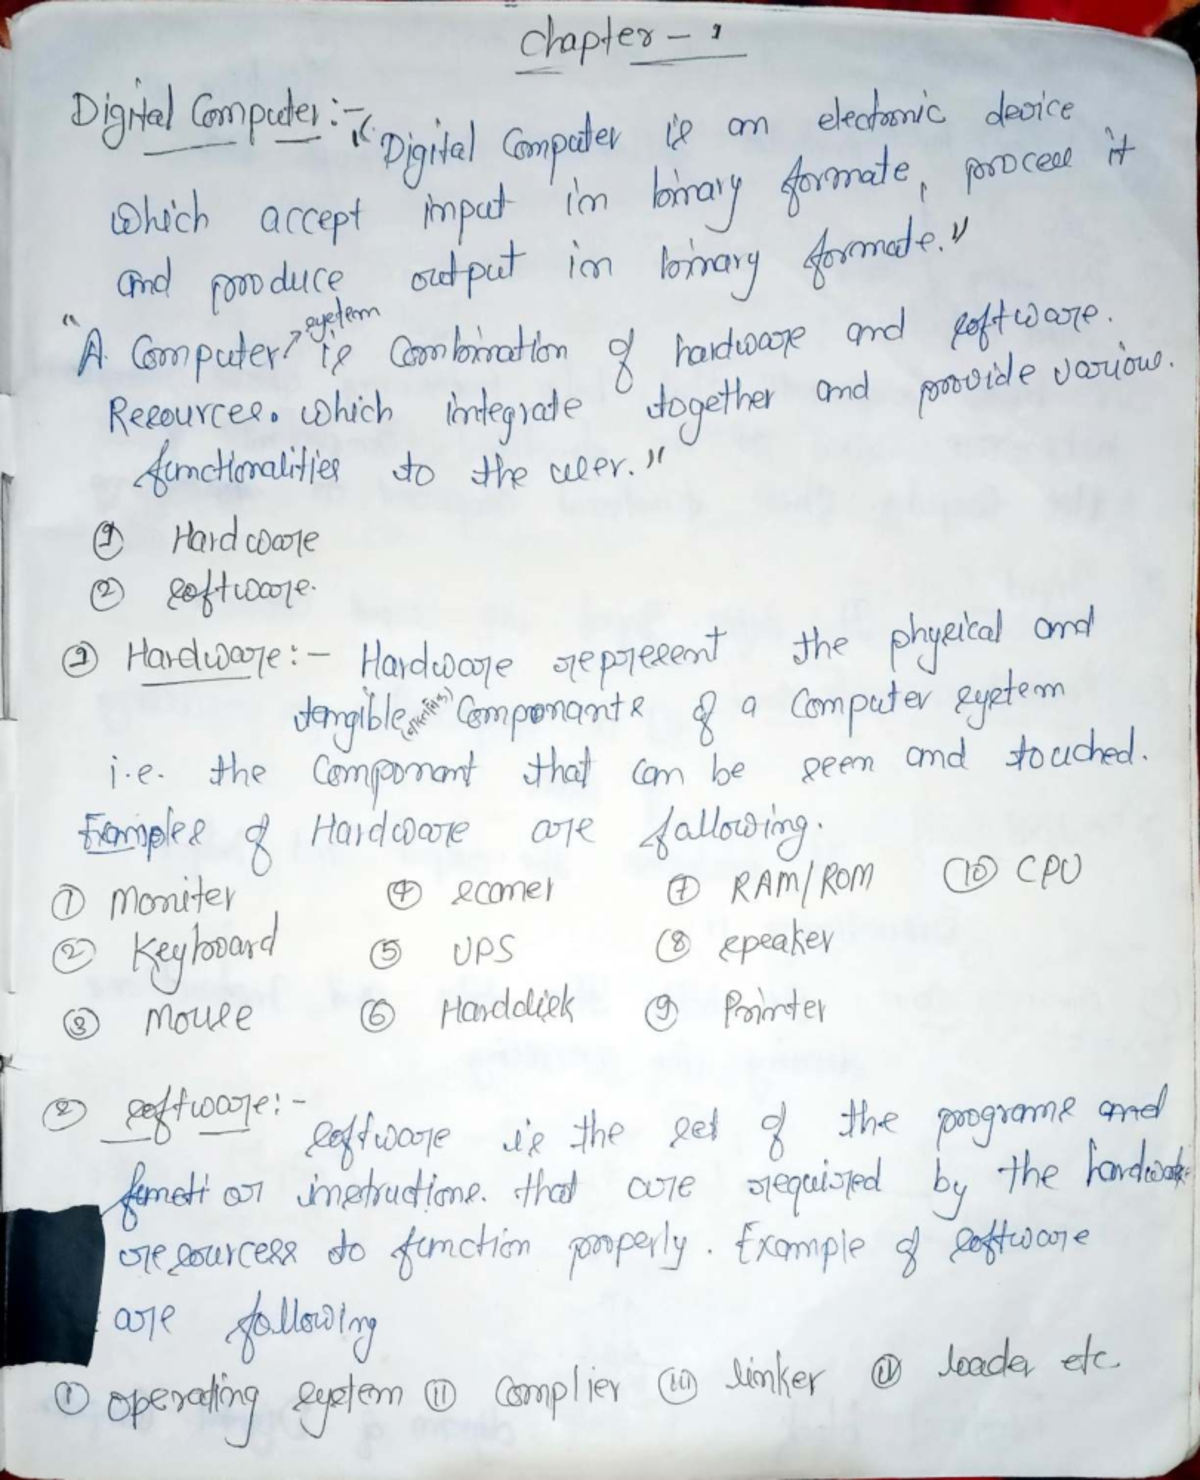 Chapter - 1
Digital Computer :-
"Digital Computer is an electronic device
which accept input in binary formate, process it
and produce output in binary formate."
"A Computer system is Combination of hardware and software.
Resources. which integrate together and provide various.
functionalities to the user."
① Hardware
② software.
① Hardware :- Hardware represent the physical and
tangible Componants of a Computer system
i.e. the Componant that can be seen and touched.
Examples of Hardware are fallowing.
① Moniter ④ scaner ⑦ RAM/ROM ⑩ CPU
② Keyboard ⑤ UPS ⑧ speaker
③ Mouse ⑥ Harddisk ⑨ Printer
② software :-
software is the set of the programs and
or instructions. that are required by the
resourcess to function properly. Example of software
are following
① operating system ⑪ Complier ⑪⑪ linker loader etc.